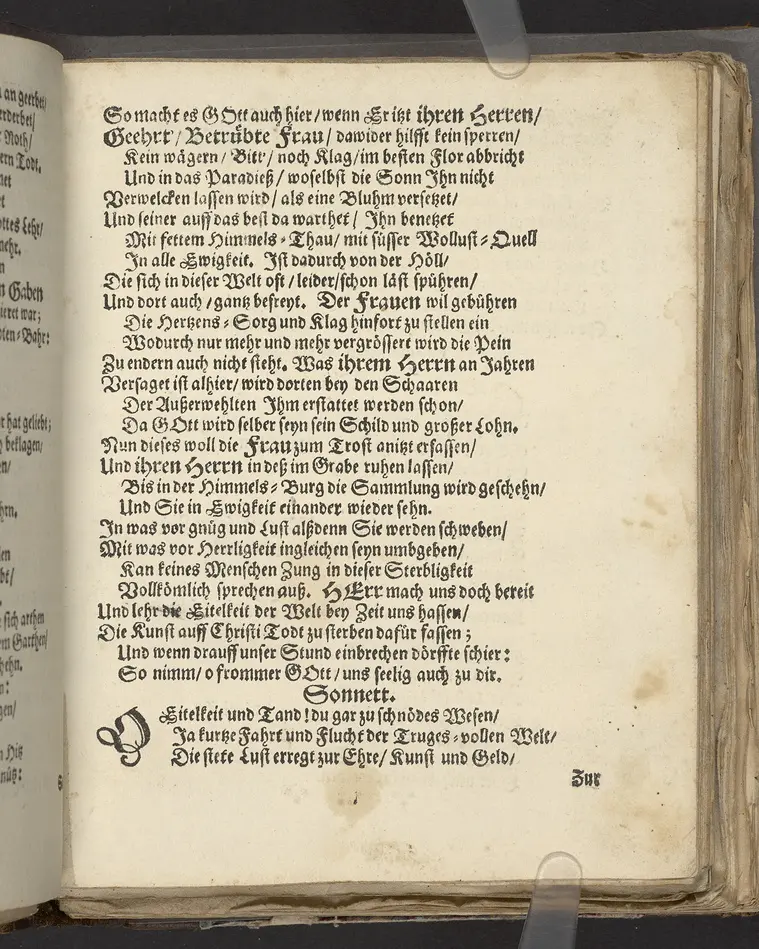 So macht es GOtt auch hier/ wenn Er itzt ihren Herren/
Geehrt/ Betrübte Frau/ dawider hilfft kein sperren/
Kein wägern/ Bitt/ noch Klag/ im besten Flor abbricht
Und in das Paradieß/ woselbst die Sonn Ihn nicht
Verwelcken lassen wird/ als eine Bluhm versetzet/
Und seiner auff das best da warthet/ Ihn benetzet
Mit fettem Himmels-Thau/ mit süsser Wollust-Quell
In alle Ewigkeit. Ist dadurch von der Höll/
Die sich in dieser Welt oft/ leider/ schon läst spühren/
Und dort auch/ gantz befreyt. Der Frauen wil gebühren
Die Hertzens-Sorg und Klag hinfort zu stellen ein
Wodurch nur mehr und mehr vergrössert wird die Pein
Zu endern auch nicht steht. Was ihrem Herrn an Jahren
Versaget ist alhier/ wird dorten bey den Schaaren
Der Außerwehlten Ihm erstattet werden schon/
Da GOtt wird selber seyn sein Schild und großer Lohn.
Nun dieses woll die Frau zum Trost anitzt erfassen/
Und ihren Herrn in deß im Grabe ruhen lassen/
Bis in der Himmels-Burg die Sammlung wird geschehn/
Und Sie in Ewigkeit einander wieder sehn.
In was vor gnüg und Lust alßdenn Sie werden schweben/
Mit was vor Herrligkeit ingleichen seyn umbgeben/
Kan keines Menschen Zung in dieser Sterbligkeit
Vollkömlich sprechen auß. HErr mach uns doch bereit
Und lehr die Eitelkeit der Welt bey Zeit uns hassen/
Die Kunst auff Christi Todt zu sterben dafür fassen;
Und wenn drauff unser Stund einbrechen dörffte schier:
So nimm/ o frommer GOtt/ uns seelig auch zu dir.
Sonnett.
O Eitelkeit und Tand! du gar zu schnödes Wesen/
Ja kurtze Fahrt und Flucht der Truges-vollen Welt/
Die stete Lust erregt zur Ehre/ Kunst und Geld/
Zur